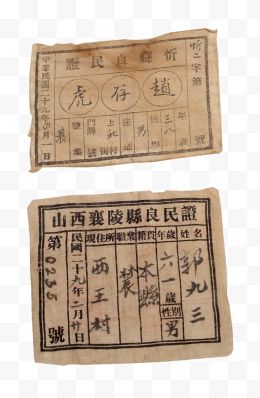 忻縣良民證
忻二字第 號
趙存虎
年 三八 歲
性 男
住 上北 村
門牌 號
職業 農
中華民國二十九年 月一日
山西襄陵縣良民證
姓名 郭九三
年歲 六一歲
性別 男
籍貫 本縣
職業 農
現住所 西王村
民國二十九年二月廿日
第0255號